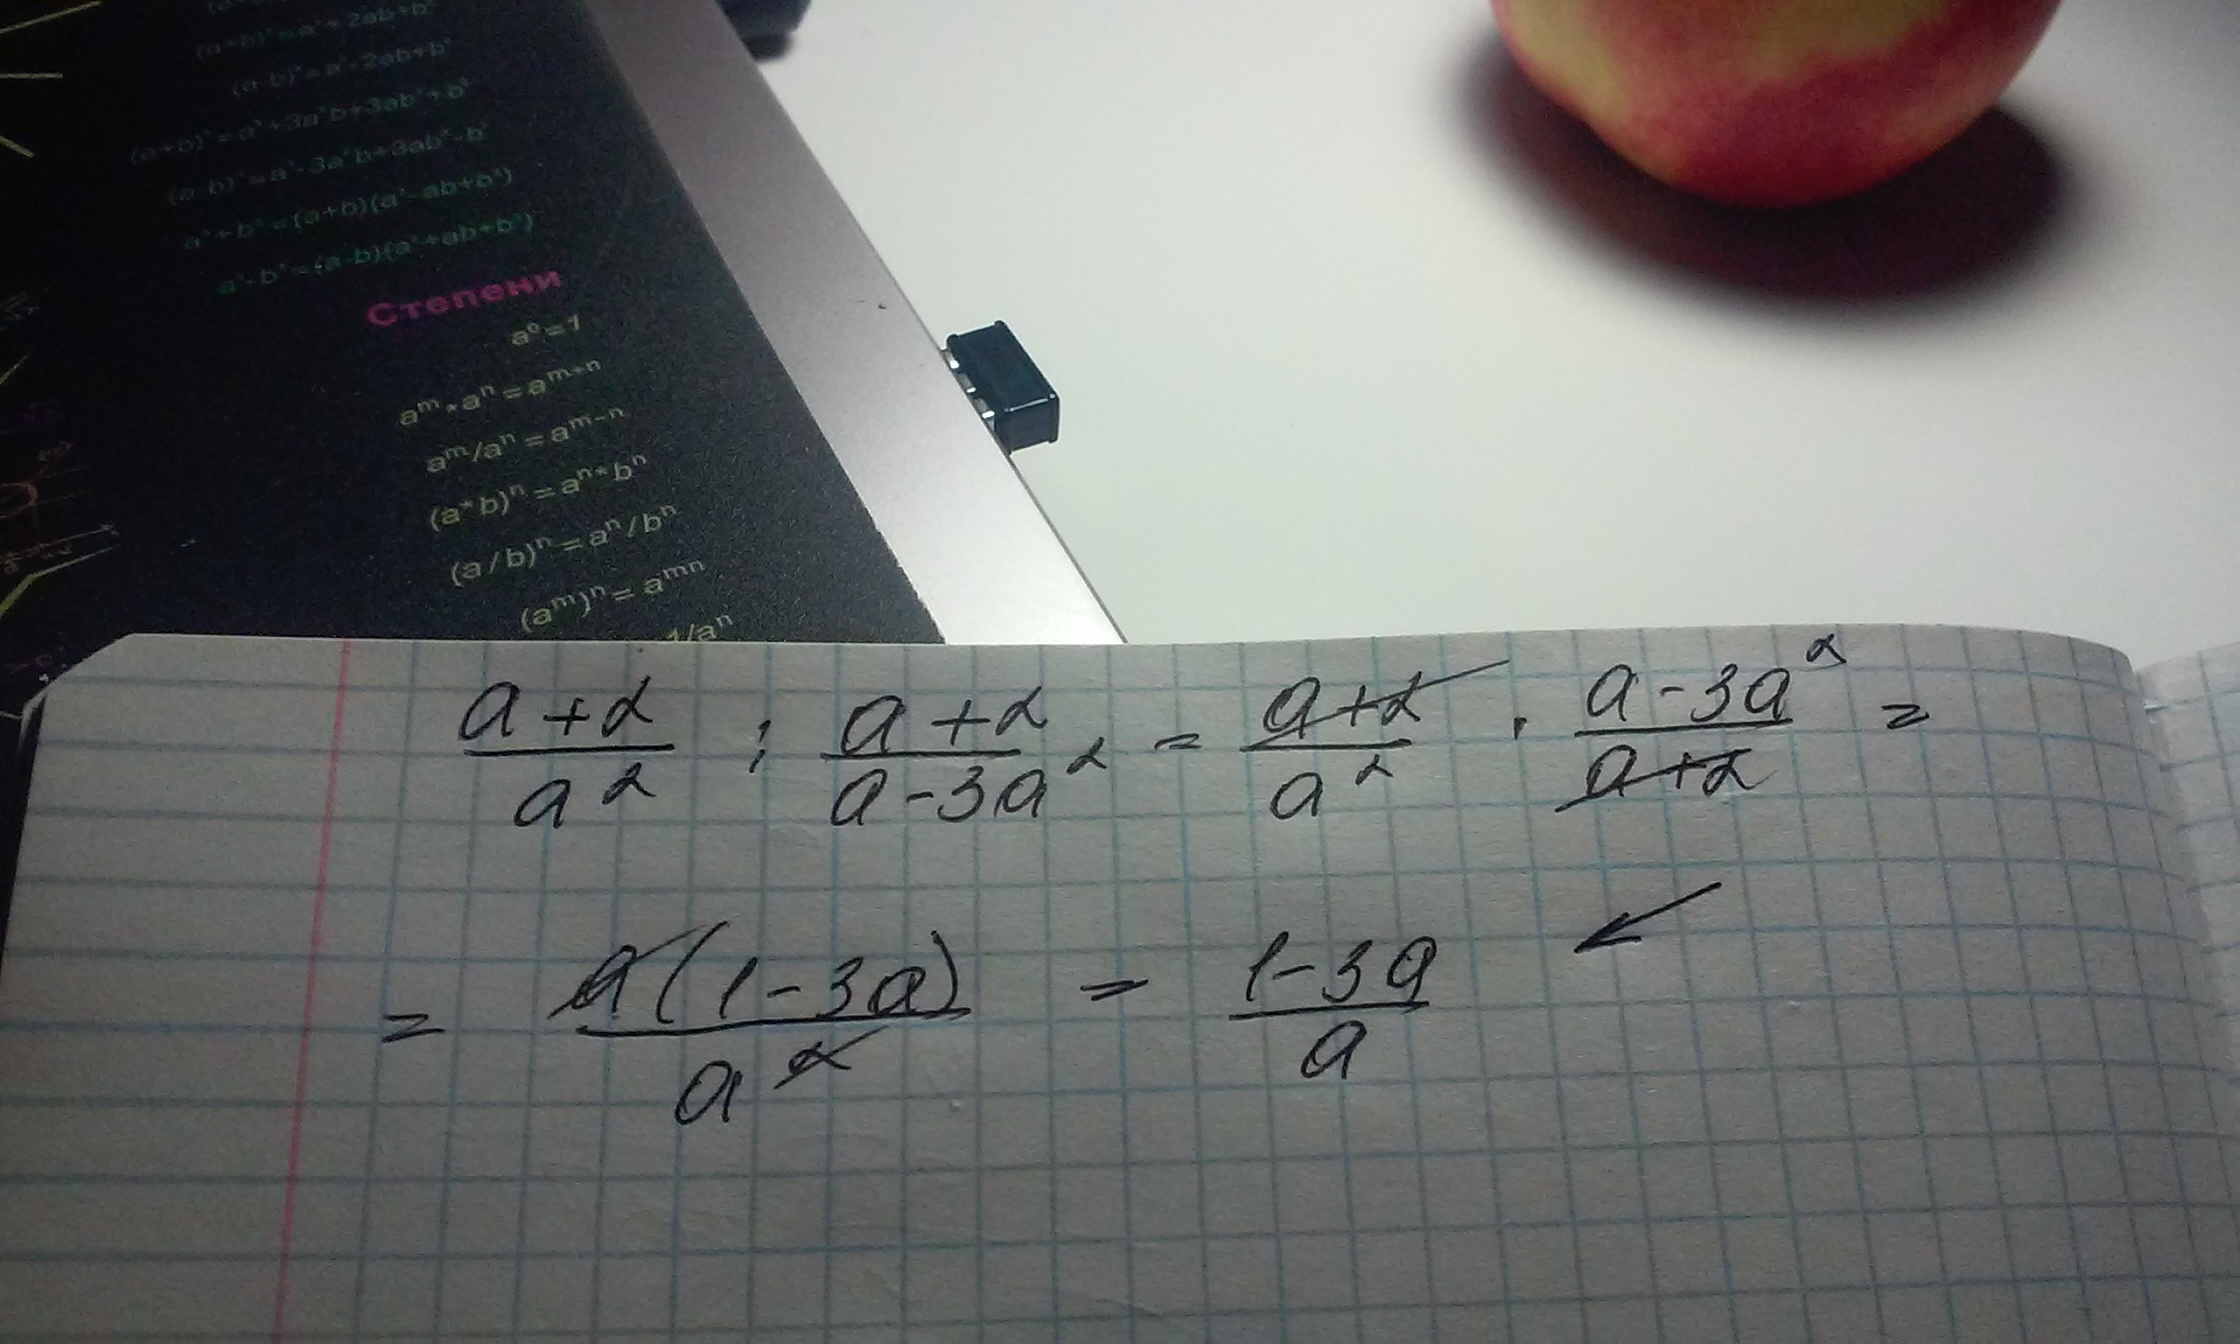 (a+b)²=a²+2ab+b²
(a-b)²=a²-2ab+b²
(a+b)³=a³+3a²b+3ab²+b³
(a-b)³=a³-3a²b+3ab²-b³
a³+b³=(a+b)(a²-ab+b²)
a³-b³=(a-b)(a²+ab+b²)
Степени
a⁰=1
aᵐ*aⁿ=aᵐ⁺ⁿ
aᵐ/aⁿ=aᵐ⁻ⁿ
(a*b)ⁿ=aⁿ*bⁿ
(a/b)ⁿ=aⁿ/bⁿ
(aᵐ)ⁿ=aᵐⁿ
1/aⁿ
(a+2)/a² : (a+2)/(a-3a²) = (a+2)/a² · (a-3a²)/(a+2) =
= a(1-3a)/a² = (1-3a)/a